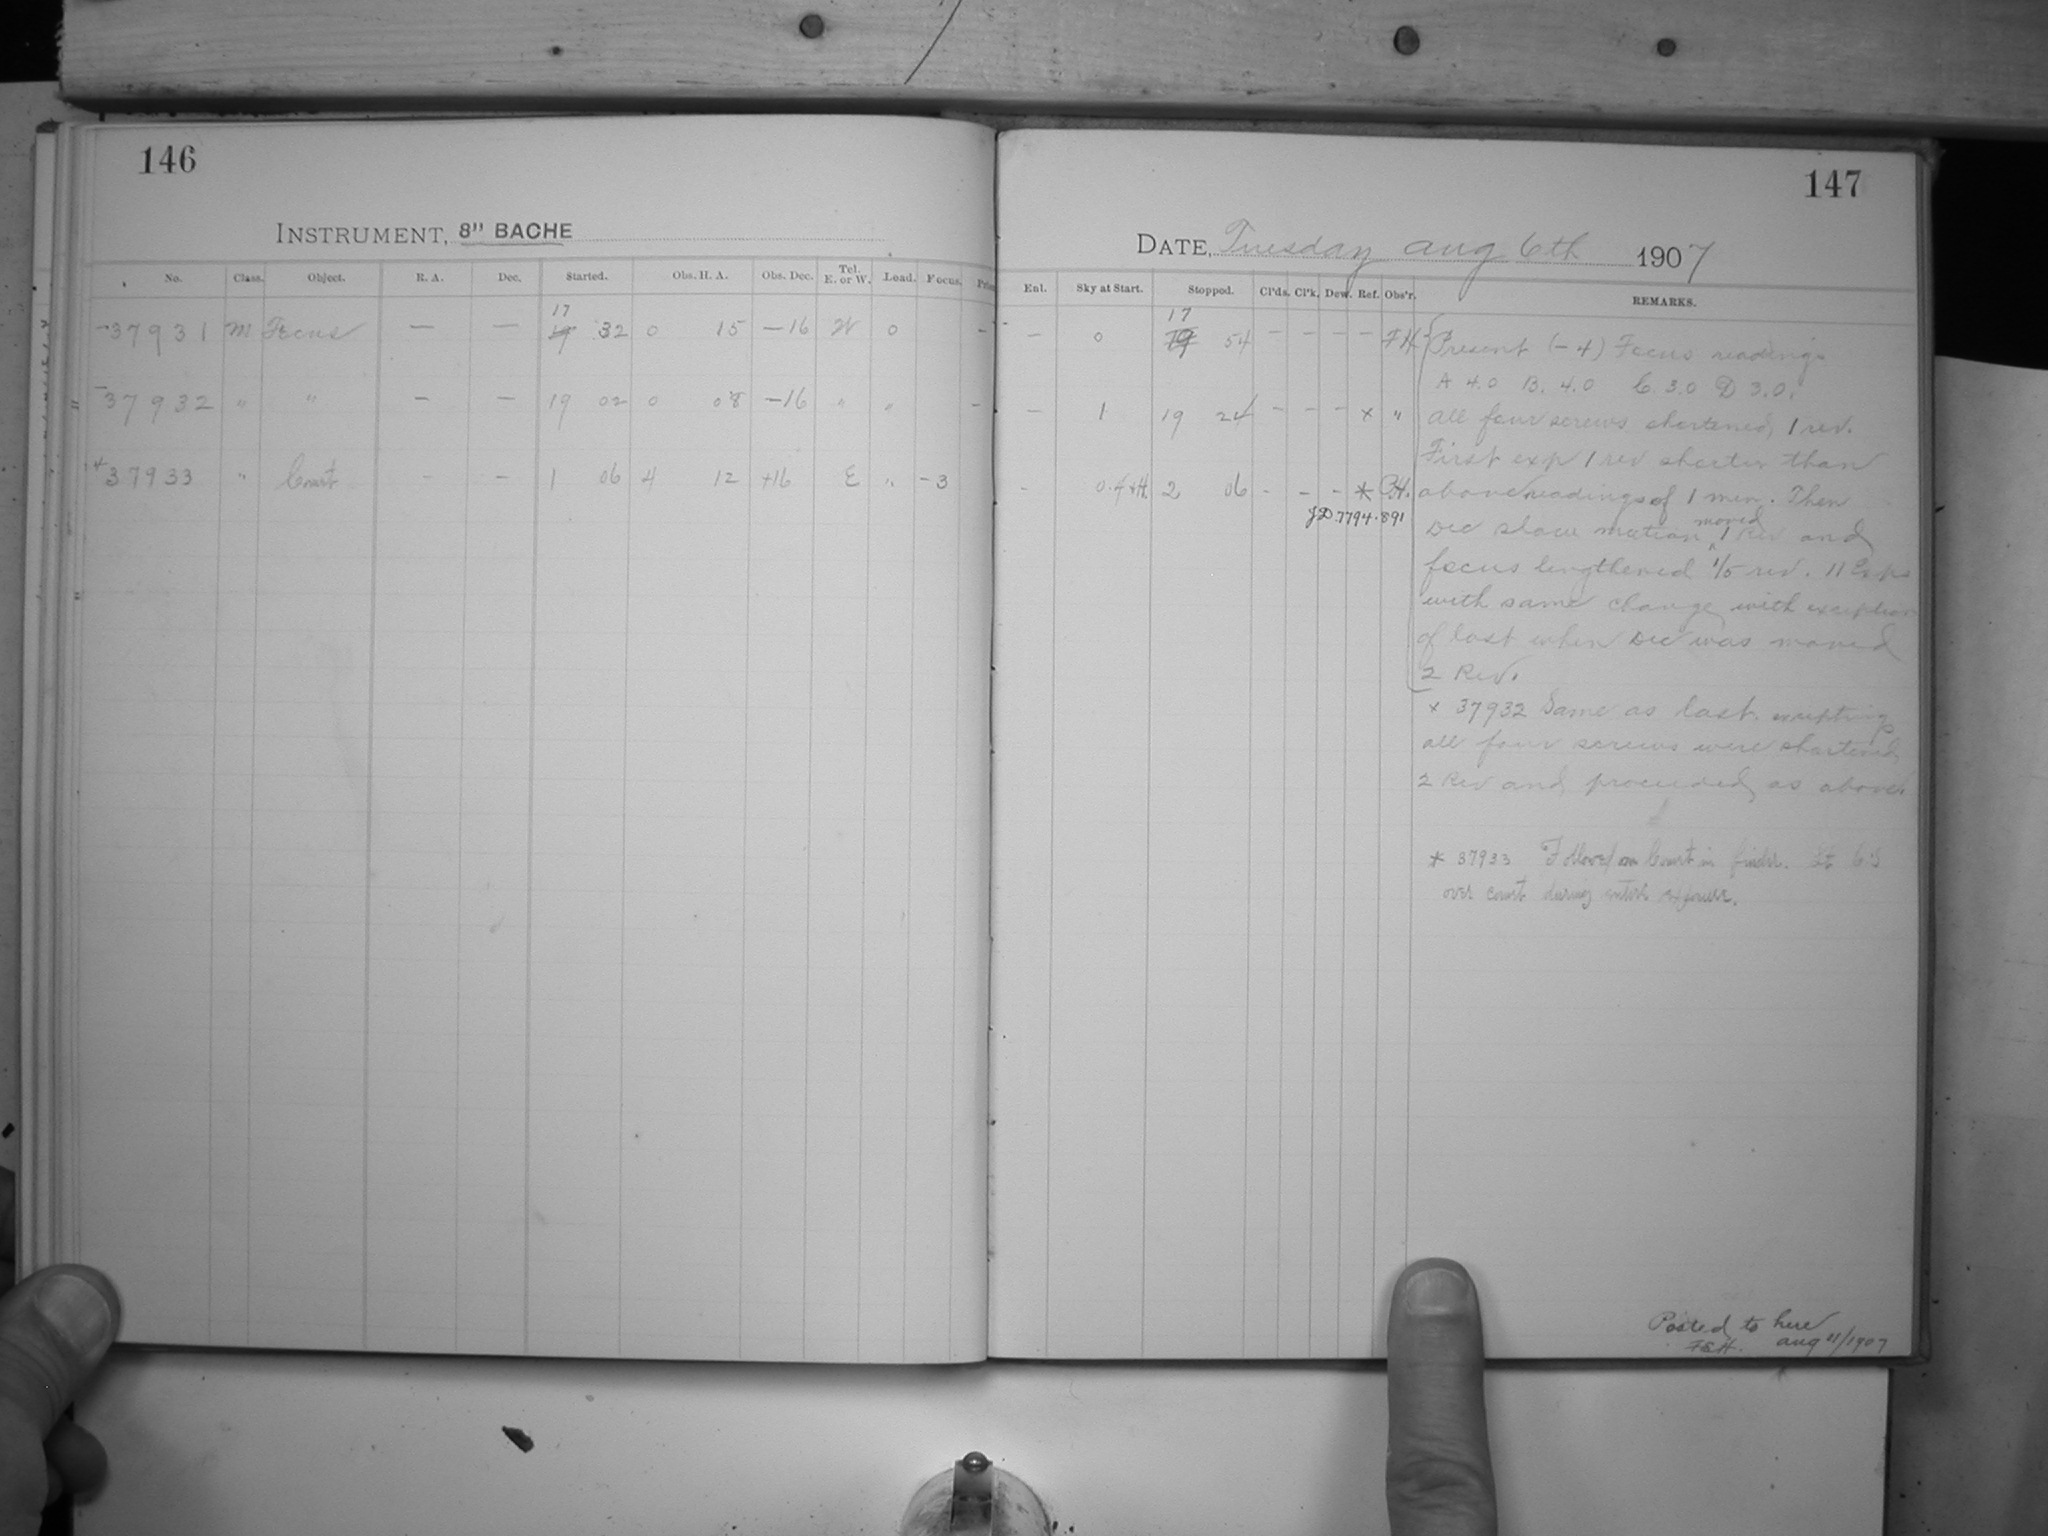 146
INSTRUMENT, 8" BACHE
No. Class. Object. R. A. Dec. Started. Obs. H. A. Obs. Dec. Tel. E. or W. Load. Focus.
17
37931 M Focus — — 19 32 0 15 —16 W 0 -
37932 " " — — 19 02 0 08 —16 " " -
37933 " Comet - - 1 06 4 12 +16 E " -3
147
DATE, Tuesday Aug 6th 1907
Ent. Sky at Start. Stopped. Cl'ds. Cl'k. Dew. Ref. Obs'r. REMARKS.
17
— 0 19 54 - - - - F.H.
— 1 19 24 - - - x "
- 2 06 - - - *
JD 7794.891
Present (-4) Focus readings
A 4.0 B. 4.0 C. 3.0 D 3.0.
All four screws shortened 1 rev.
First exp 1 rev shorter than
above readings of 1 min. Then
Dec slow motion moved 1 Rev and
focus lengthened 1/5 rev. 11 Exps
with same change with exception
of last when Dec was moved
2 Rev.
x 37932 Same as last excepting
all four screws were shortened
2 Rev and proceeded as above.
* 37933 Followed on Comet in finder. Lt C'ds
over comet during entire exposure.
Posted to here
F.E.H. Aug 11/1907